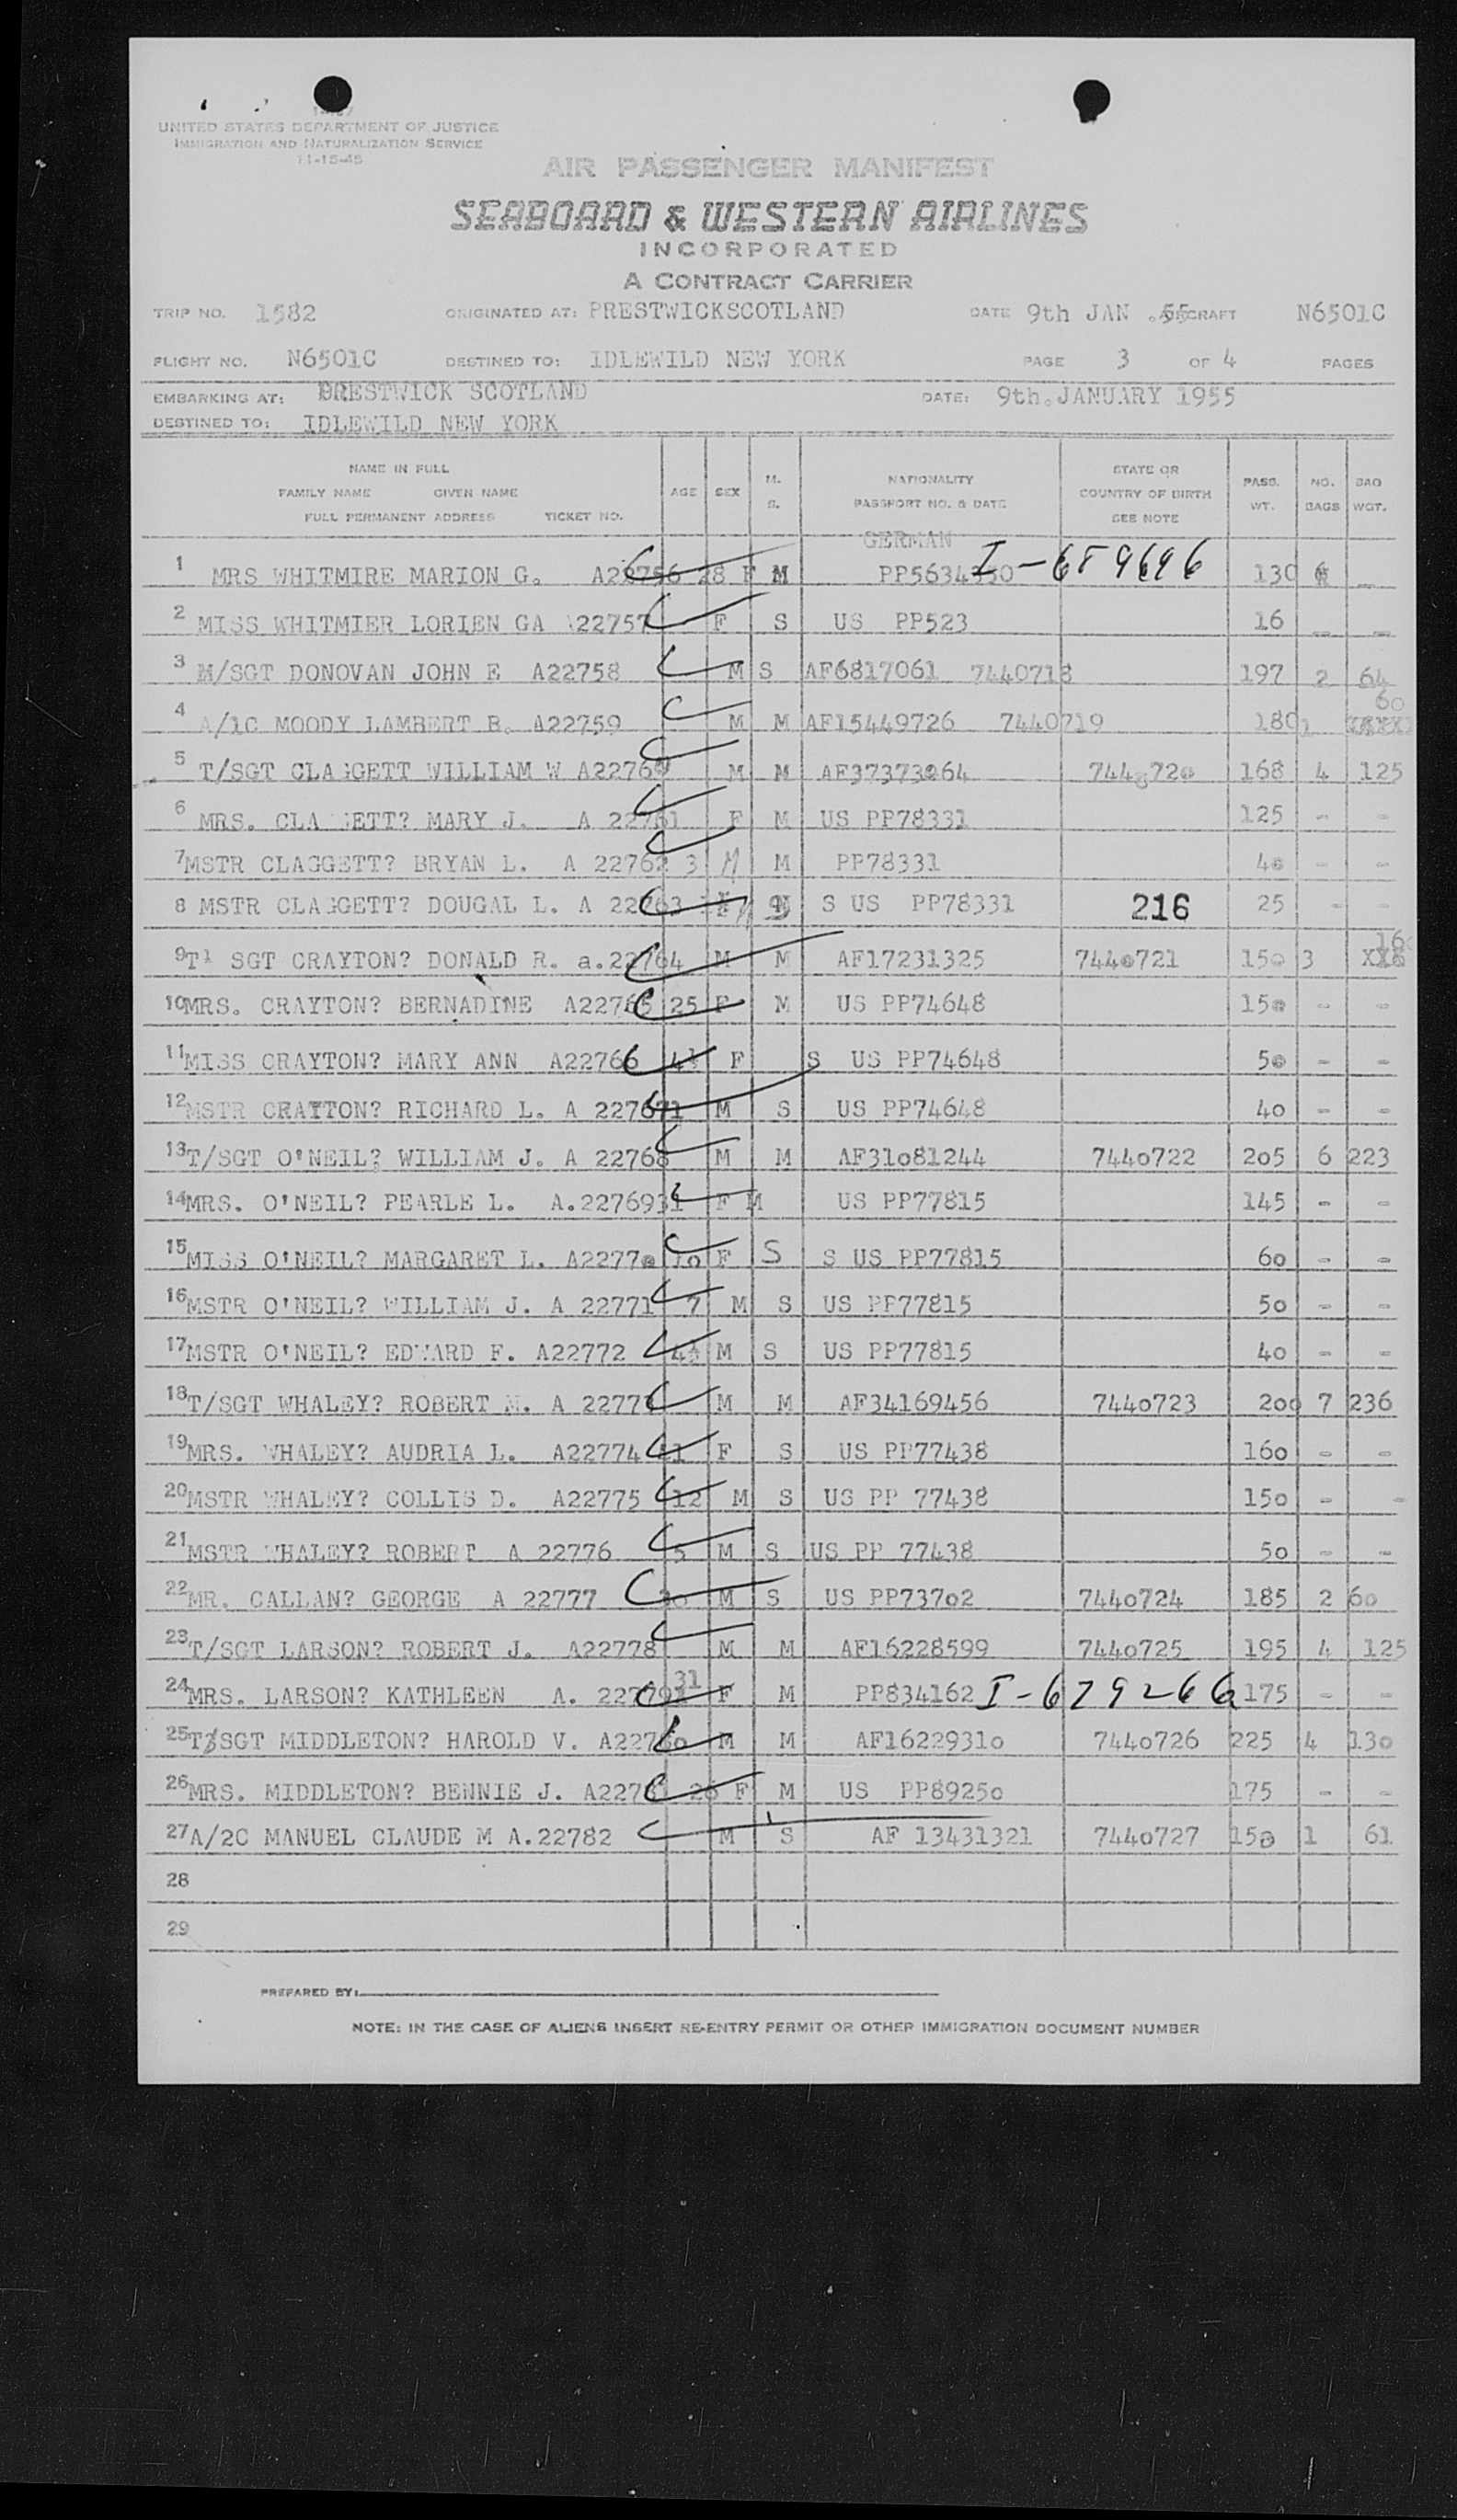 UNITED STATES DEPARTMENT OF JUSTICE
IMMIGRATION AND NATURALIZATION SERVICE
11-15-45
AIR PASSENGER MANIFEST
SEABOARD & WESTERN AIRLINES
INCORPORATED
A CONTRACT CARRIER
TRIP NO. 1582 ORIGINATED AT: PRESTWICKSCOTLAND DATE 9th JAN .55 N6501C
FLIGHT NO. N6501C DESTINED TO: IDLEWILD NEW YORK PAGE 3 OF 4 PAGES
EMBARKING AT: PRESTWICK SCOTLAND DATE: 9th.JANUARY 1955
DESTINED TO: IDLEWILD NEW YORK
NAME IN FULL
FAMILY NAME GIVEN NAME
FULL PERMANENT ADDRESS TICKET NO.
AGE SEX M. S.
NATIONALITY
PASSPORT NO. & DATE
STATE OR
COUNTRY OF BIRTH
SEE NOTE
PASS. WT. NO. BAGS BAG WGT.
GERMAN
1 MRS WHITMIRE MARION G. A22756 28 F M I-689696 130
2 MISS WHITMIER LORIEN GA 22757 F S US PP523 16 - -
3 M/SGT DONOVAN JOHN E A22758 M S AF6817061 7440718 197 2 64
4 A/1C MOODY LAMBERT B. A22759 M M AF15449726 7440719 180 1 60
5 T/SGT CLAGGETT WILLIAM W A22760 M M AF37373064 7440720 168 4 125
6 MRS. CLAGGETT? MARY J. A 22761 F M US PP78331 125 - -
7 MSTR CLAGGETT? BRYAN L. A 22762 3 M M PP78331 40 - -
8 MSTR CLAGGETT? DOUGAL L. A 22763 S US PP78331 216 25 - -
9 T1 SGT CRAYTON? DONALD R. a.22764 M M AF17231325 7440721 150 3
10 MRS. CRAYTON? BERNADINE A22765 25 F M US PP74648 150 - -
11 MISS CRAYTON? MARY ANN A22766 4½ F S US PP74648 50 - -
12 MSTR CRAYTON? RICHARD L. A 22767 1 M S US PP74648 40 - -
13 T/SGT O'NEIL? WILLIAM J. A 22768 M M AF31081244 7440722 205 6 223
14 MRS. O'NEIL? PEARLE L. A.22769 31 F M US PP77815 145 - -
15 MISS O'NEIL? MARGARET L. A22770 10 F S S US PP77815 60 - -
16 MSTR O'NEIL? WILLIAM J. A 22771 7 M S US PP77815 50 - -
17 MSTR O'NEIL? EDWARD F. A22772 4½ M S US PP77815 40 - -
18 T/SGT WHALEY? ROBERT M. A 22773 M M AF34169456 7440723 200 7 236
19 MRS. WHALEY? AUDRIA L. A22774 F S US PP77438 160 - -
20 MSTR WHALEY? COLLIS D. A22775 12 M S US PP 77438 150 - -
21 MSTR WHALEY? ROBERT A 22776 5 M S US PP 77438 50 - -
22 MR. CALLAN? GEORGE A 22777 30 M S US PP73702 7440724 185 2 60
23 T/SGT LARSON? ROBERT J. A22778 M M AF16228599 7440725 195 4 125
24 MRS. LARSON? KATHLEEN A. 22779 31 F M PP834162 I-679266 175 - -
25 T/SGT MIDDLETON? HAROLD V. A22780 M M AF16229310 7440726 225 4 130
26 MRS. MIDDLETON? BENNIE J. A2278 26 F M US PP89250 175 - -
27 A/2C MANUEL CLAUDE M A.22782 M S AF 13431321 7440727 150 1 61
28
29
PREPARED BY:
NOTE: IN THE CASE OF ALIENS INSERT RE-ENTRY PERMIT OR OTHER IMMIGRATION DOCUMENT NUMBER